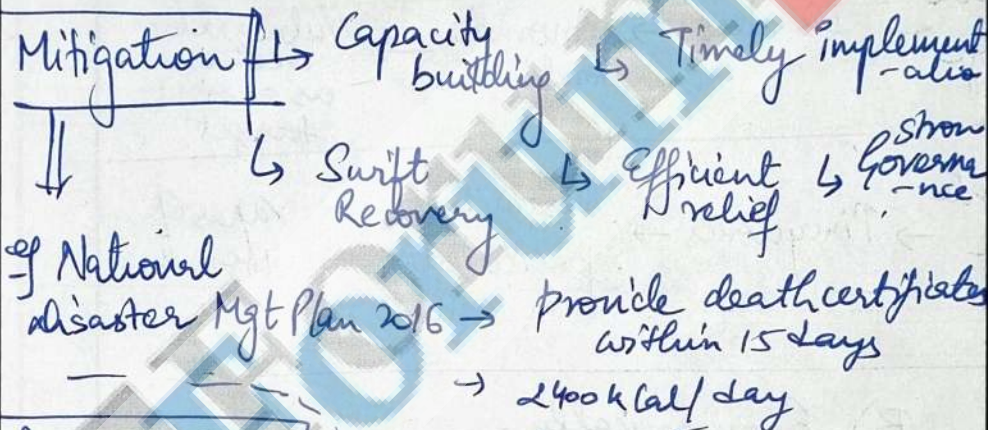 Mitigation ↳ Capacity building ↳ Timely implement-atio
↳ Swift Recovery ↳ Efficient relief ↳ Stron Governa-nce
eg National
disaster Mgt Plan 2016 → provide death certificates
within 15 days
→ 2400 kcal/day
Forum